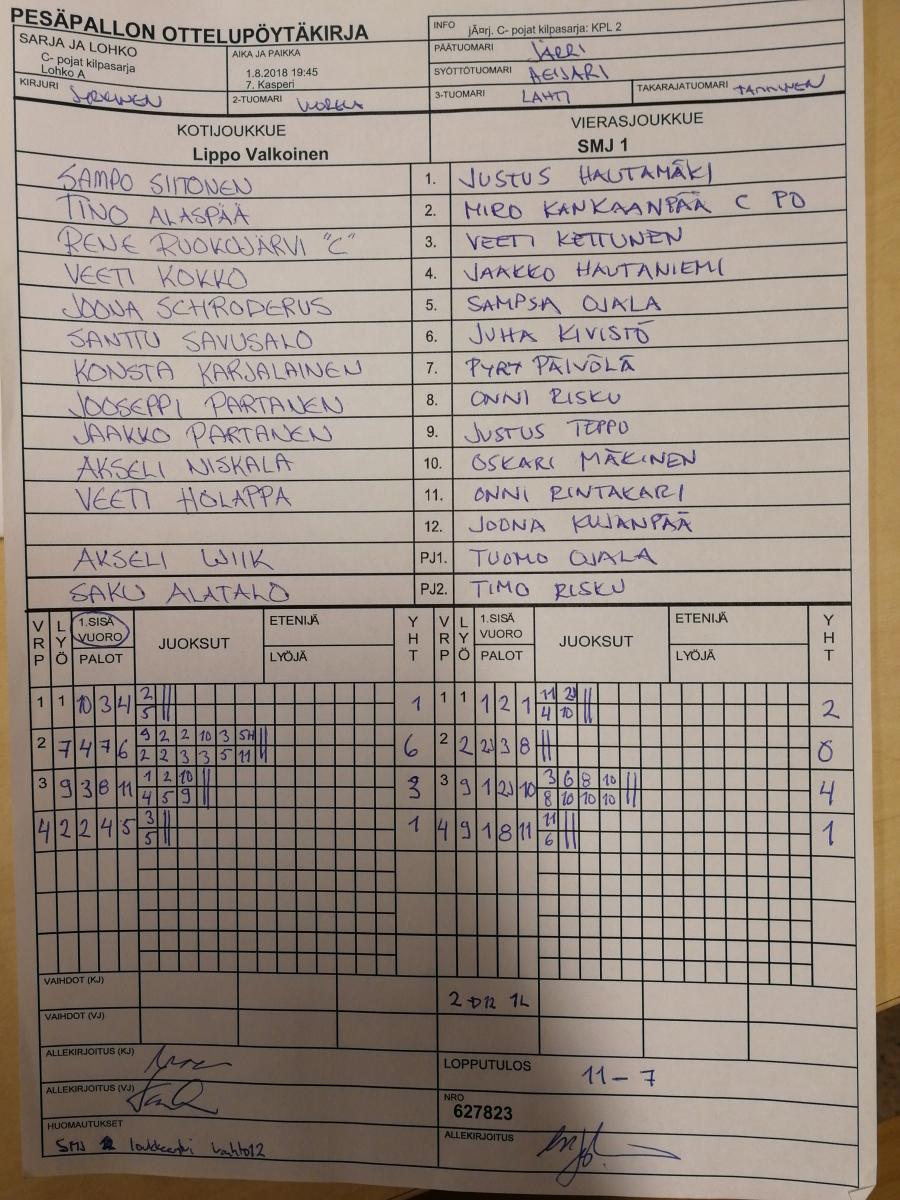 PESÄPALLON OTTELUPÖYTÄKIRJA
SARJA JA LOHKO
C- pojat kilpasarja
Lohko A
AIKA JA PAIKKA
1.8.2018 19:45
7. Kasperi
KIRJURI
2-TUOMARI
INFO jÄ¤rj. C- pojat kilpasarja: KPL 2
PÄÄTUOMARI JÄRRI
SYÖTTÖTUOMARI AEIJÄRI
3-TUOMARI LAHTI
TAKARAJATUOMARI
KOTIJOUKKUE VIERASJOUKKUE
Lippo Valkoinen SMJ 1
SAMPO SIITONEN 1. JUSTUS HAUTAMÄKI
TINO ALASPÄÄ 2. MIRO KANKAANPÄÄ C PO
RENE RUOKOJÄRVI "C" 3. VEETI KETTUNEN
VEETI KOKKO 4. JAAKKO HAUTANIEMI
JOONA SCHRODERUS 5. SAMPSA OJALA
SANTTU SAVUSALO 6. JUHA KIVISTÖ
KONSTA KARJALAINEN 7. PYRY PÄIVÖLÄ
JOOSEPPI PARTANEN 8. ONNI RISKU
JAAKKO PARTANEN 9. JUSTUS TEPPO
AKSELI NISKALA 10. OSKARI MÄKINEN
VEETI HOLAPPA 11. ONNI RINTAKARI
12. JOONA KUJANPÄÄ
AKSELI WIIK PJ1. TUOMO OJALA
SAKU ALATALO PJ2. TIMO RISKU
VRP LYÖ 1.SISÄ VUORO PALOT JUOKSUT ETENIJÄ LYÖJÄ YHT VRP LYÖ 1.SISÄ VUORO PALOT JUOKSUT ETENIJÄ LYÖJÄ YHT
1 1 10 3 4 2 1 1 1 1 2 1 11 2J 2
5 4 10
2 7 4 7 6 9 2 2 10 3 5H 6 2 2 2J 3 8 0
2 2 3 3 5 11
3 9 3 8 11 1 2 10 3 3 9 1 2J 10 3 6 8 10 4
4 5 9 8 10 10 10
4 2 2 4 5 3 1 4 9 1 8 11 11 1
5 6
VAIHDOT (KJ)
VAIHDOT (VJ)
ALLEKIRJOITUS (KJ)
LOPPUTULOS 11 - 7
ALLEKIRJOITUS (VJ)
NRO
627823
HUOMAUTUKSET
ALLEKIRJOITUS